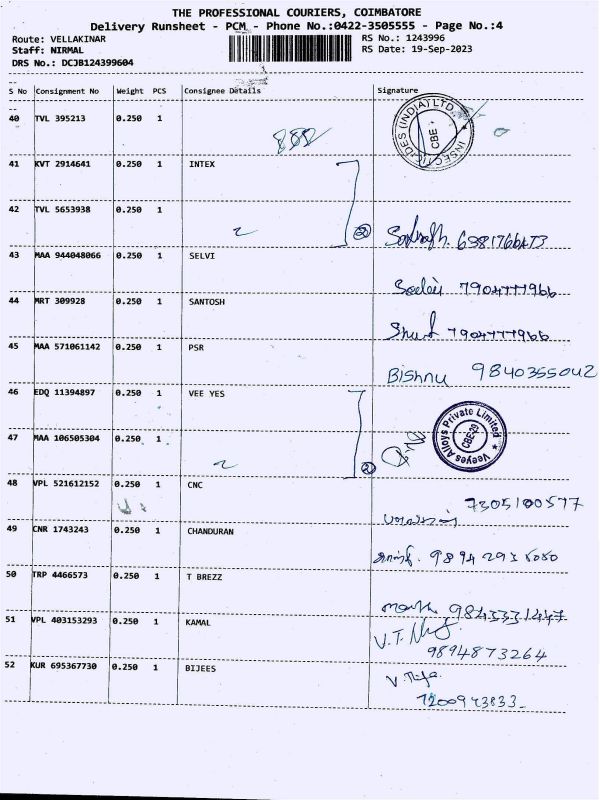 THE PROFESSIONAL COURIERS, COIMBATORE
Delivery Runsheet - PCM - Phone No.:0422-3505555 - Page No.:4
Route: VELLAKINAR RS No.: 1243996
Staff: NIRMAL RS Date: 19-Sep-2023
DRS No.: DCJB124399604
S No Consignment No Weight PCS Consignee Details Signature
40 TVL 395213 0.250 1
INSECTICIDES (INDIA) LTD. CBE
41 KVT 2914641 0.250 1 INTEX
42 TVL 5653938 0.250 1
2 2
43 MAA 944048066 0.250 1 SELVI
7904777966
44 MRT 309928 0.250 1 SANTOSH
7904777966
45 MAA 571061142 0.250 1 PSR
Bishnu 9840355042
46 EDQ 11394897 0.250 1 VEE YES
Veeyes Alloys Private Limited CBE-29
47 MAA 106505304 0.250 1
2 2
48 VPL 521612152 0.250 1 CNC
7305100577
49 CNR 1743243 0.250 1 CHANDURAN
50 TRP 4466573 0.250 1 T BREZZ
51 VPL 403153293 0.250 1 KAMAL
9894873264
52 KUR 695367730 0.250 1 BIJEES
7200943833